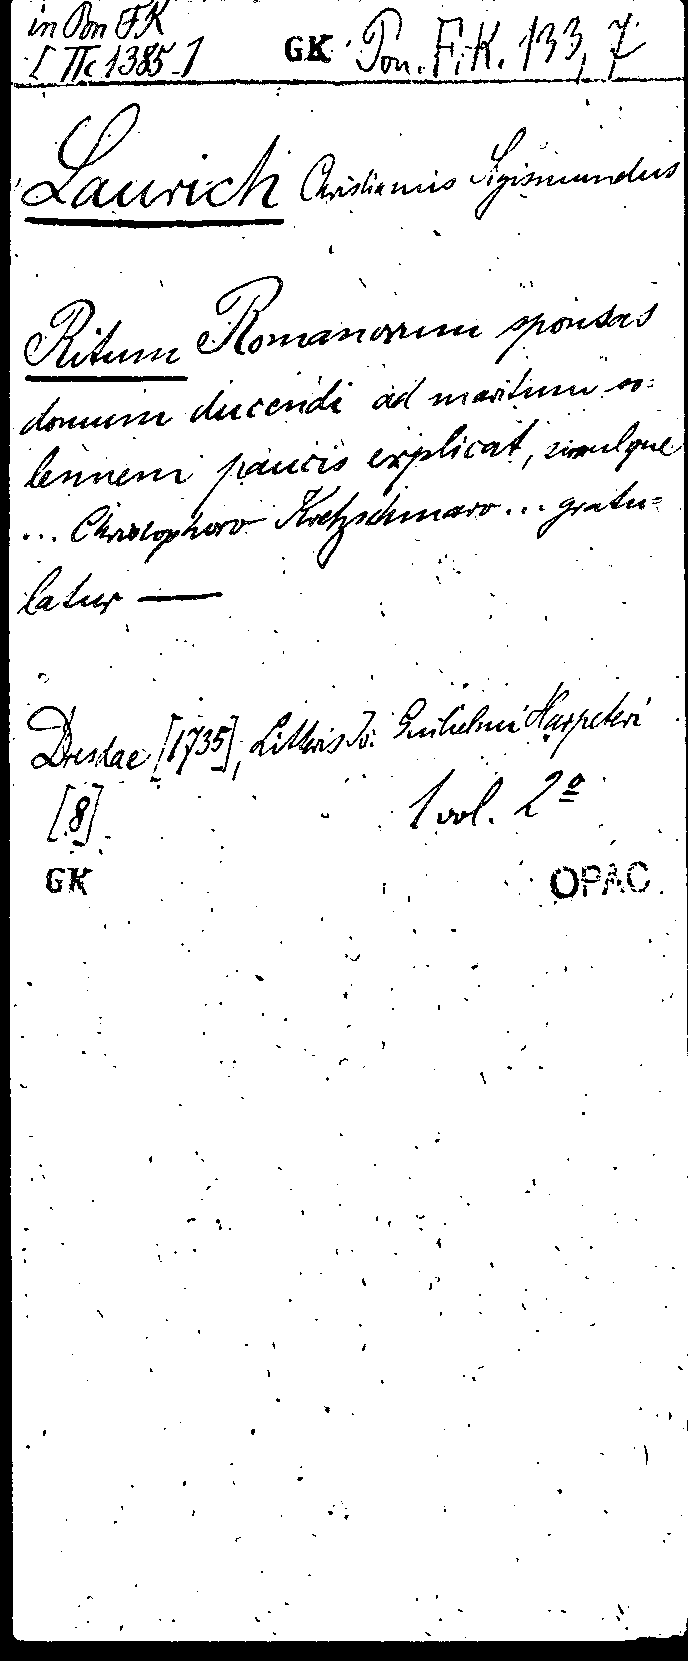 in Pon FK
[ IIc 1385-]
GK Pon. F.K. 133, 7
Laurich Christianus Sigismundus
Ritum Romanorum sponsas
domum ducendi ad maritum so=
lennem paucis explicat, simulque
... Christophoro Kretzschmaro ... gratu=
latur —
Dresdae [1735], Litteris Jo: Guilielmi Harpeteri
[8] 1 vol. 2º
GK OPAC